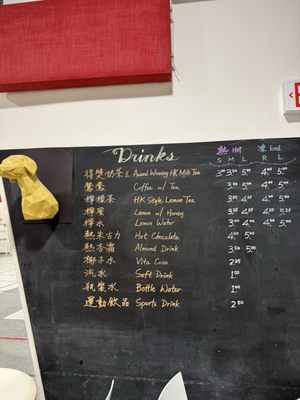 Drinks
熱 Hot 凍 Iced
S M L R L
得獎奶茶王 Award Winning HK Milk Tea 3.50 5.00 4.00 5.00
鴛鴦 Coffee w/ Tea 3.50 5.00 4.00 5.00
檸檬茶 HK Style Lemon Tea
檸蜜 Lemon w/ Honey
檸水 Lemon Water
熱朱古力 Hot Chocolate 4.00 5.00
熱杏霜 Almond Drink 3.50 5.00
椰子水 Vita Coco 2.25
汽水 Soft Drink 1.00
瓶裝水 Bottle Water 1.00
運動飲品 Sports Drink 2.50